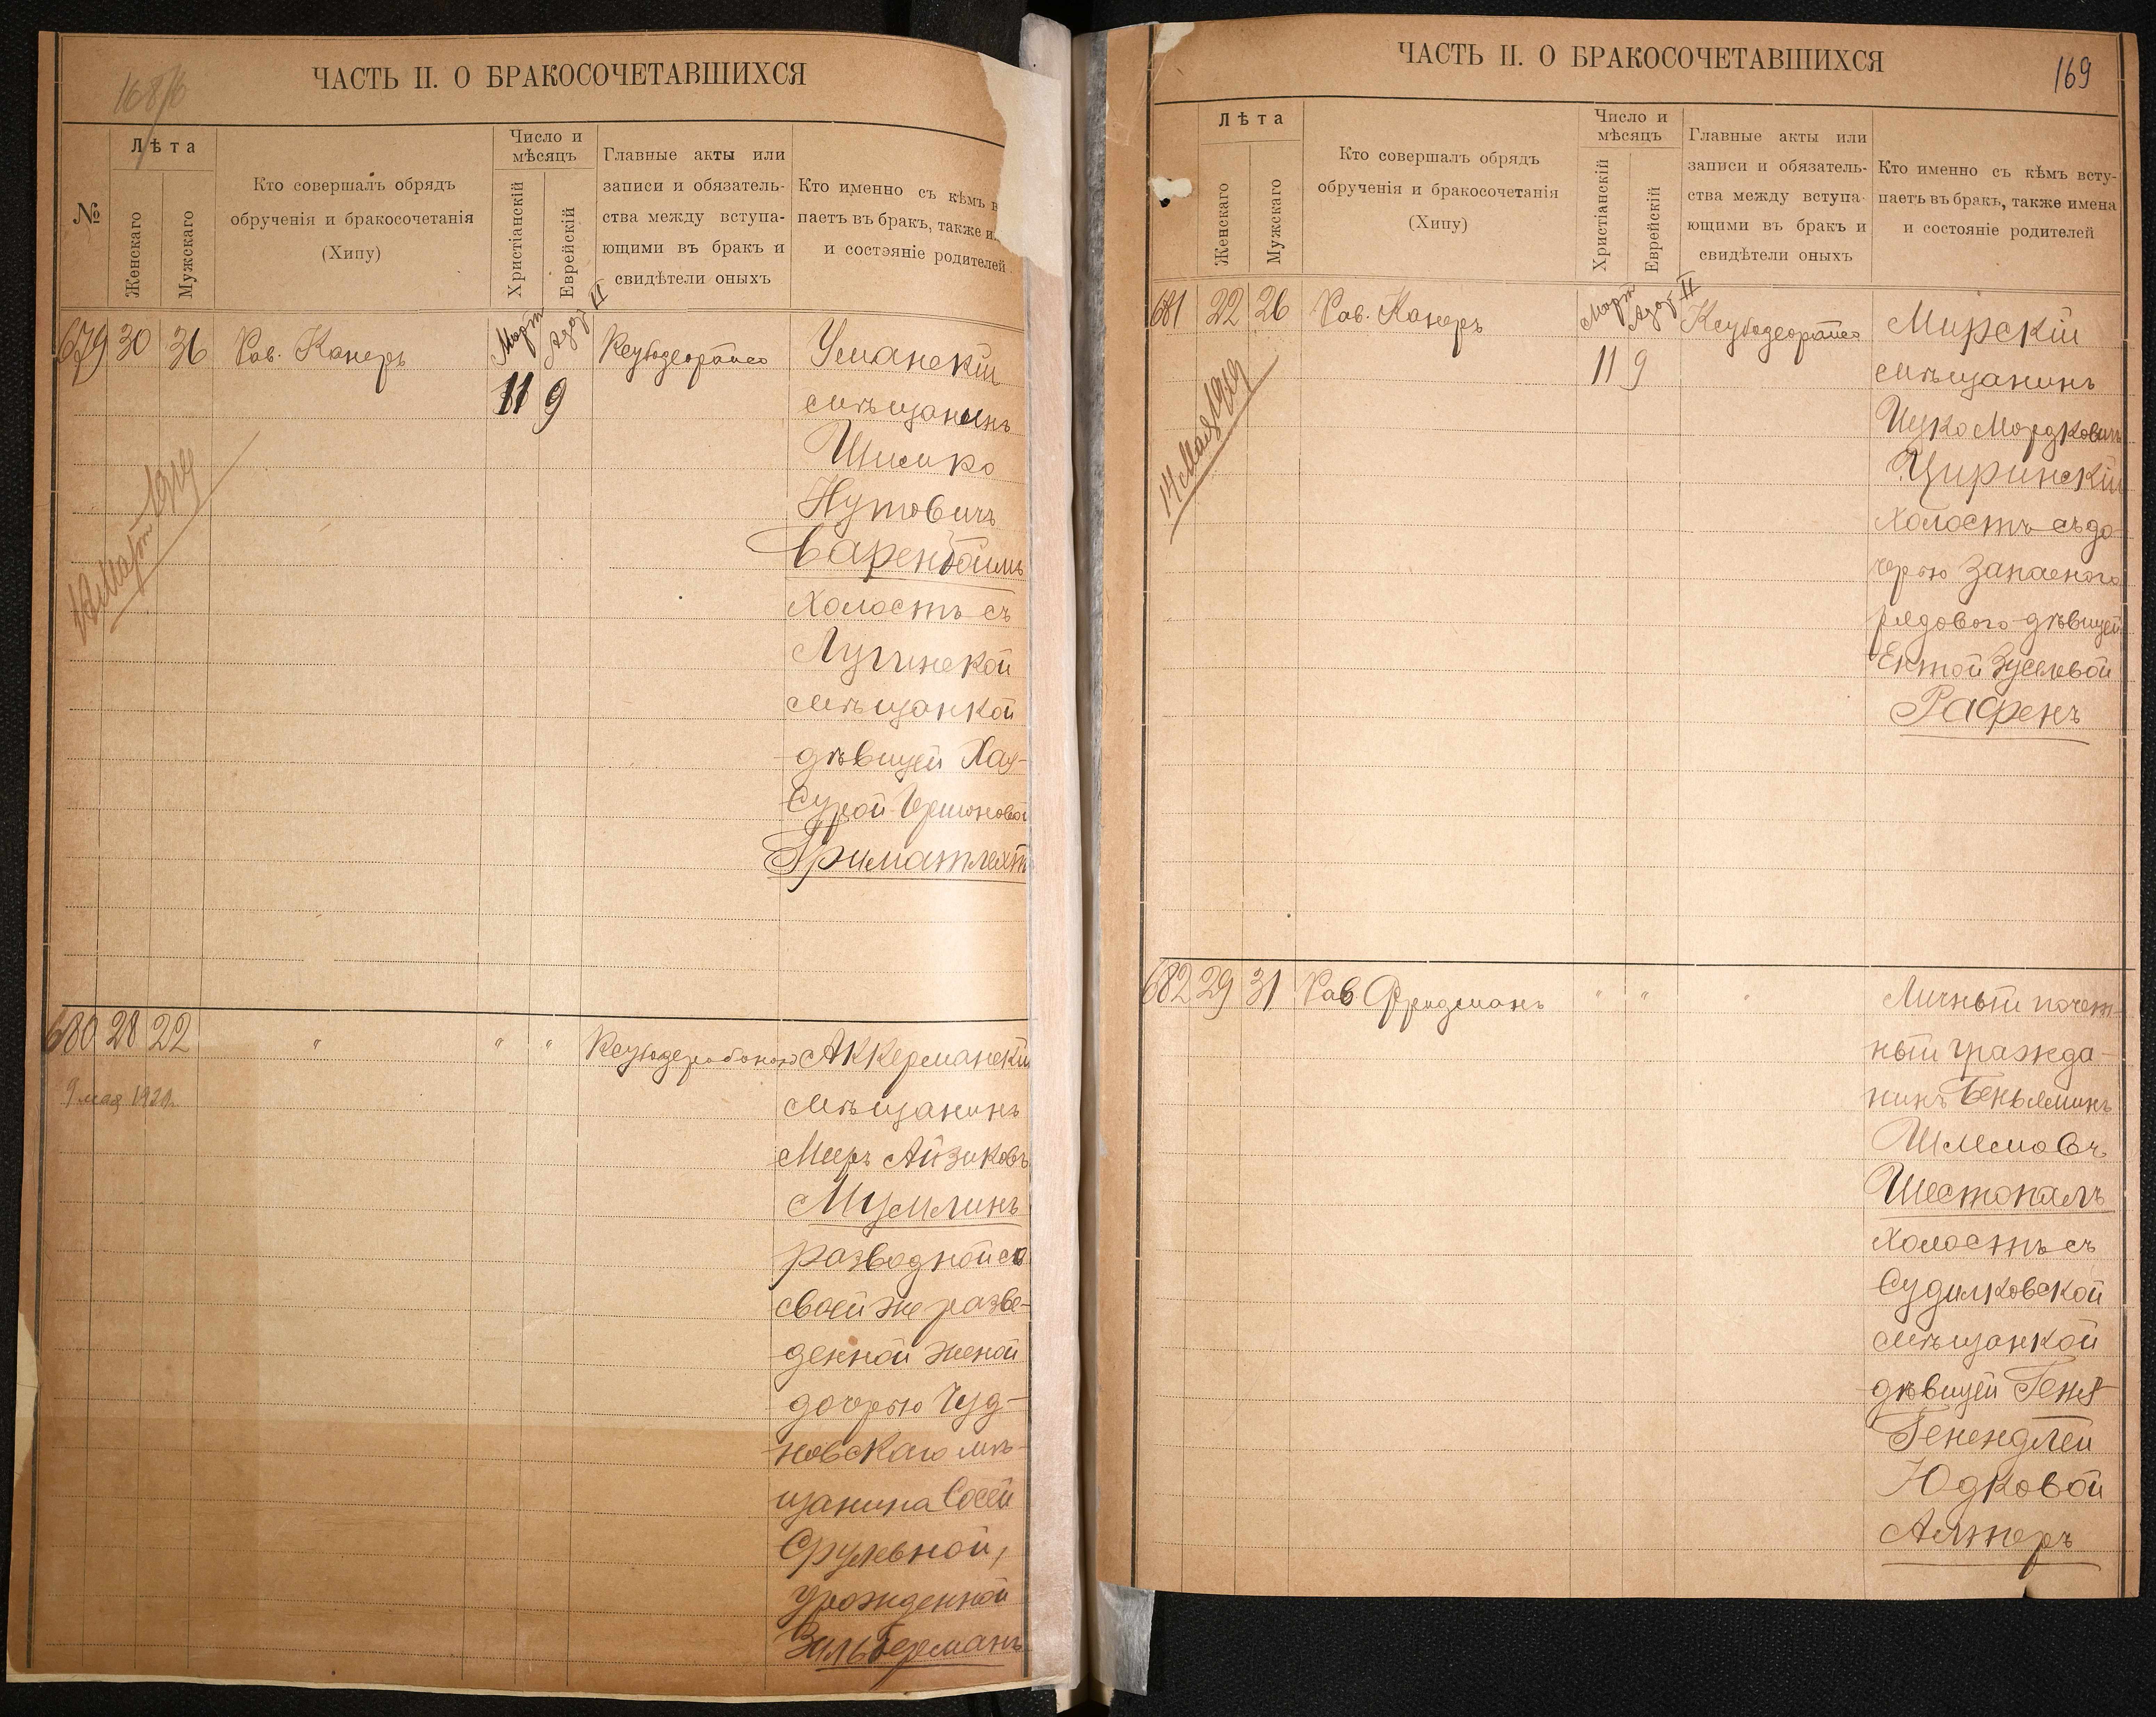 168/б
ЧАСТЬ II. О БРАКОСОЧЕТАВШИХСЯ
№
Лѣта
Женскаго
Мужскаго
Кто совершалъ обрядъ
обрученія и бракосочетанія
(Хипу)
Число и
мѣсяцъ
Христіанскій
Еврейскій
Главные акты или
записи и обязатель-
ства между вступа-
ющими въ бракъ и
свидѣтели оныхъ
Кто именно съ кѣмъ в
паетъ въ бракъ, также и
и состояніе родителей
679 30 36 Рав. Канеръ Март Адар II
11 9
Уманскій
мѣщанинъ
Шимко
Нутовичъ
Баренбоймъ
Холостъ съ
Лугинской
мѣщанкой
дѣвицей Хая-
Сурой Гершоновой
Гриматлехт
Март 1919
680 28 22 " " " Аккерманскій
9 мая 1920г.
мѣщанинъ
Мееръ Айзиковъ
Мумлинъ
разводной съ
своей же разве-
денной женой
дочерью Чуд-
новскаго мѣ-
щанина Сосей
Срулевной,
урожденной
Зильберманъ
ЧАСТЬ II. О БРАКОСОЧЕТАВШИХСЯ
169
Лѣта
Женскаго
Мужскаго
Кто совершалъ обрядъ
обрученія и бракосочетанія
(Хипу)
Число и
мѣсяцъ
Христіанскій
Еврейскій
Главные акты или
записи и обязатель-
ства между вступа-
ющими въ бракъ и
свидѣтели оныхъ
Кто именно съ кѣмъ всту-
паетъ въ бракъ, также имена
и состояніе родителей
681 22 26 Рав. Канеръ Март Адар II Мирскій
11 9
мѣщанинъ
Ицко Мордковичъ
Циринскій
Холостъ съ до-
черью Запасного
рядового дѣвицей
Ентой Зуселевой
Рафенъ
14 Мая 1919
682 29 31 Рав Фридманъ " " " Личный почет-
ный гражда-
нинъ Беньяминъ
Шлемовъ
Шестопалъ
Холостъ съ
Судилковской
мѣщанкой
дѣвицей Геня-
Генендлей
Юдковой
Алтеръ